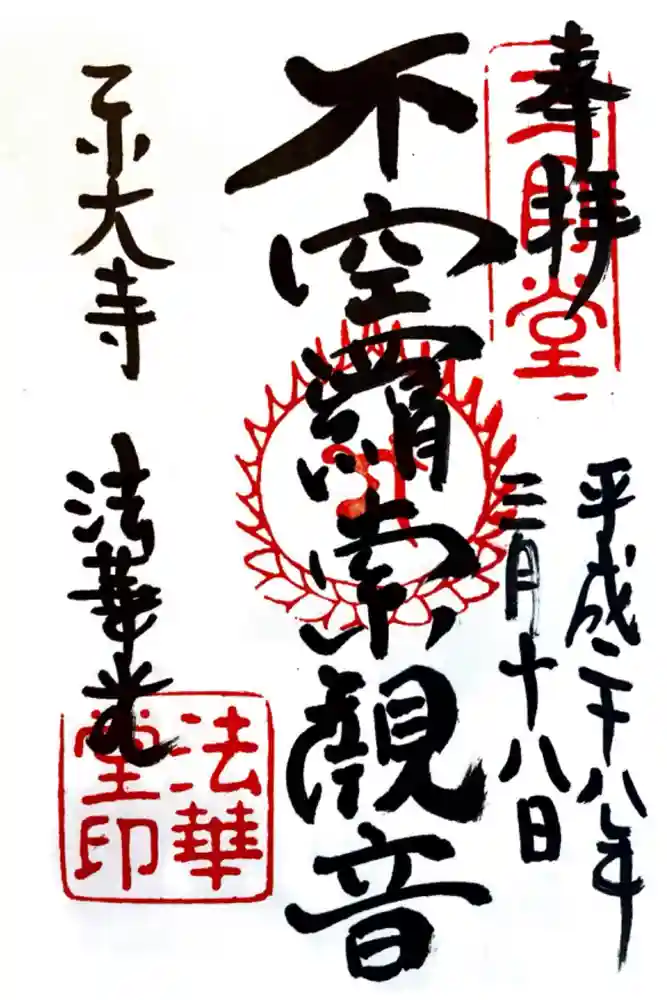 奉拝
三月堂
平成二十八年
三月十八日
不空羂索観音
東大寺 法華堂
法華堂印